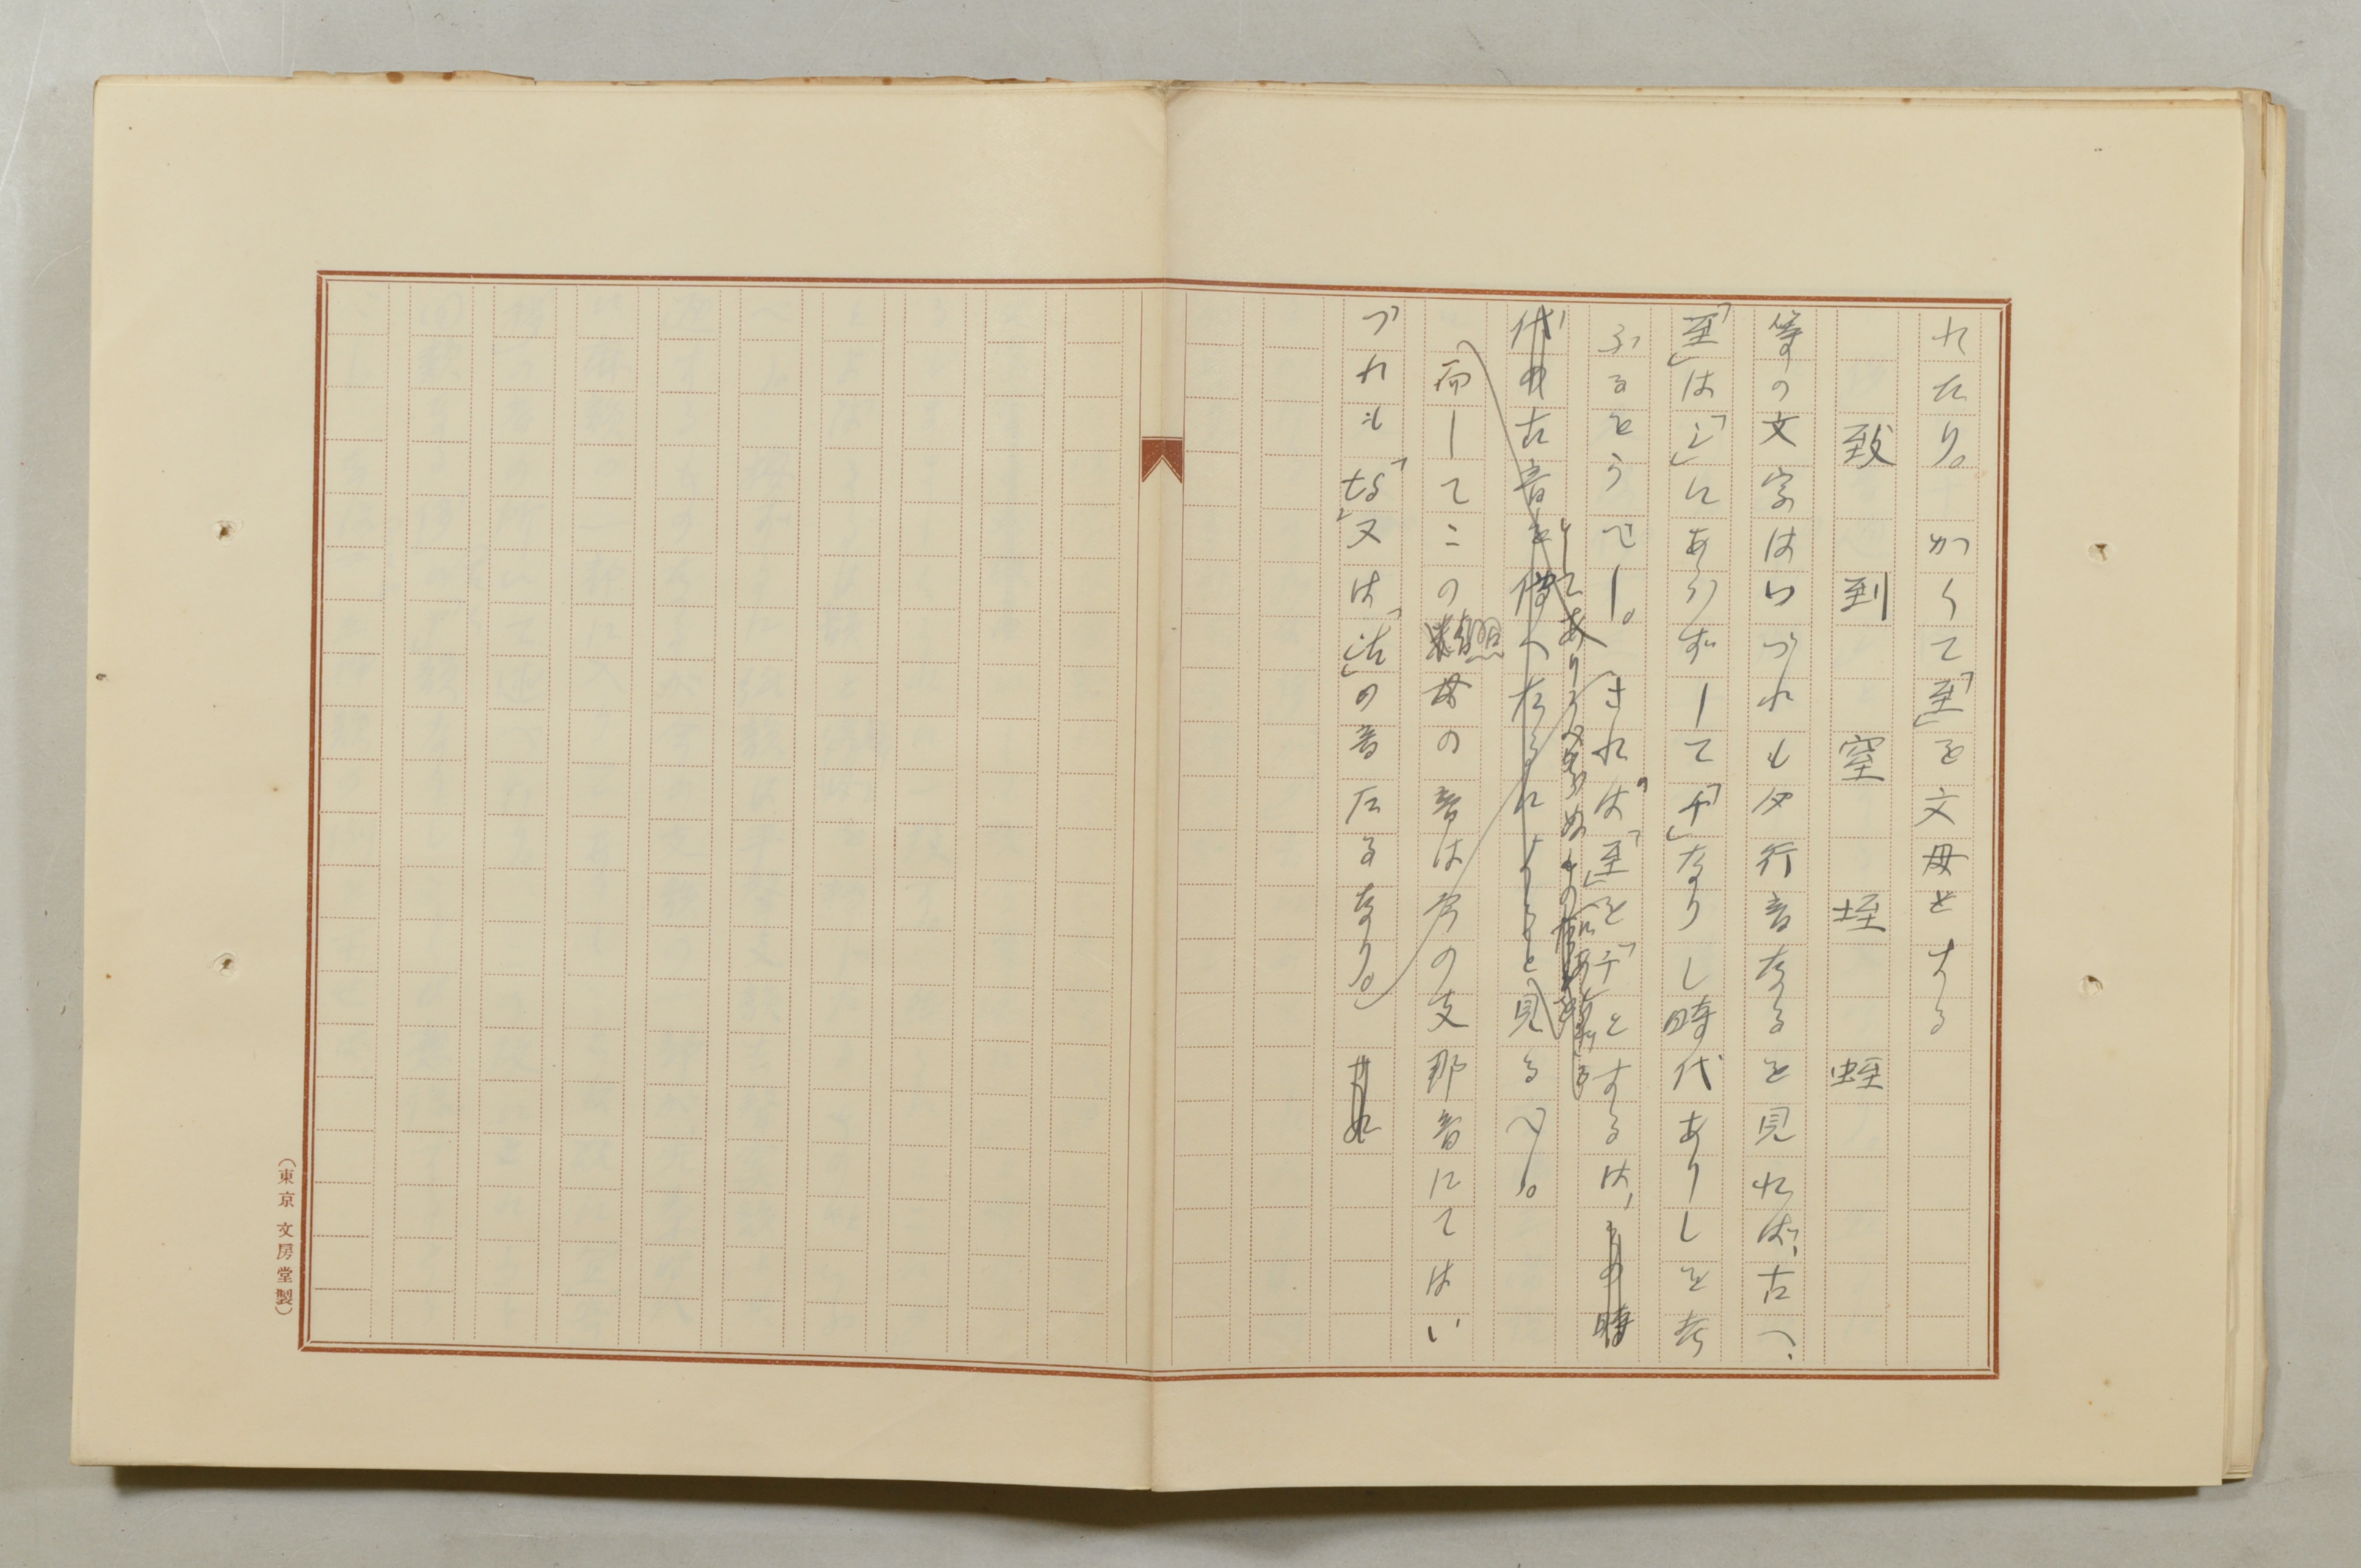 れたり。かくて「至」を文母とする
致 到 窒 垤 蛭
等の文字はいづれもタ行音なるを見れば、古へ、
「至」は「シ」にあらずして「チ」なりし時代ありしを考
ふるをうべし。されば「至」を「チ」とするは、その時
代の古音を傳へたるによると見るべし。
而してこの 母の音は今の支那音にてはい
づれも「な」又は「は」の音たるなり。され
(東京 文房堂製)